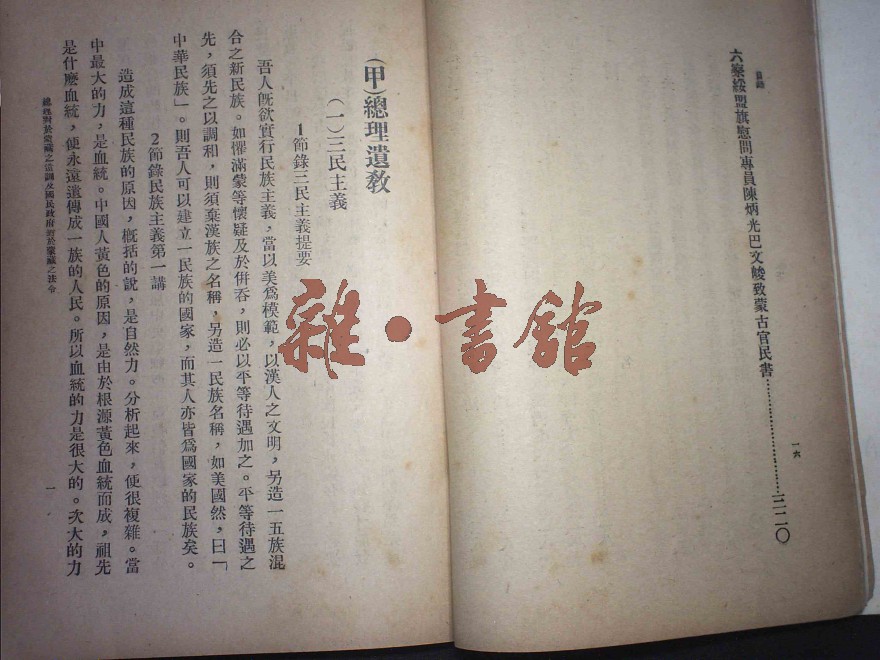 目錄
六察綏盟旗慰問專員陳炳光巴文峻致蒙古官民書……………………三二〇
一六
(甲)總理遺教
(一)三民主義
1節錄三民主義提要
吾人旣欲實行民族主義,當以美爲模範,以漢人之文明,另造一五族混
合之新民族。如懼滿蒙等懷疑及於併吞,則必以平等待遇加之。平等待遇之
先,須先之以調和,則須棄漢族之名稱,另造一民族名稱,如美國然,曰「
中華民族」。則吾人可以建立一民族的國家,而其人亦皆爲國家的民族矣。
2節錄民族主義第一講
造成這種民族的原因,概括的說,是自然力。分析起來,便很複雜。當
中最大的力,是血統。中國人黃色的原因,是由於根源黃色血統而成,祖先
是什麽血統,便永遠遺傳成一族的人民。所以血統的力是很大的。次大的力
總理對於蒙藏之遺訓及國民政府對於蒙藏之法令
一
雜·書館